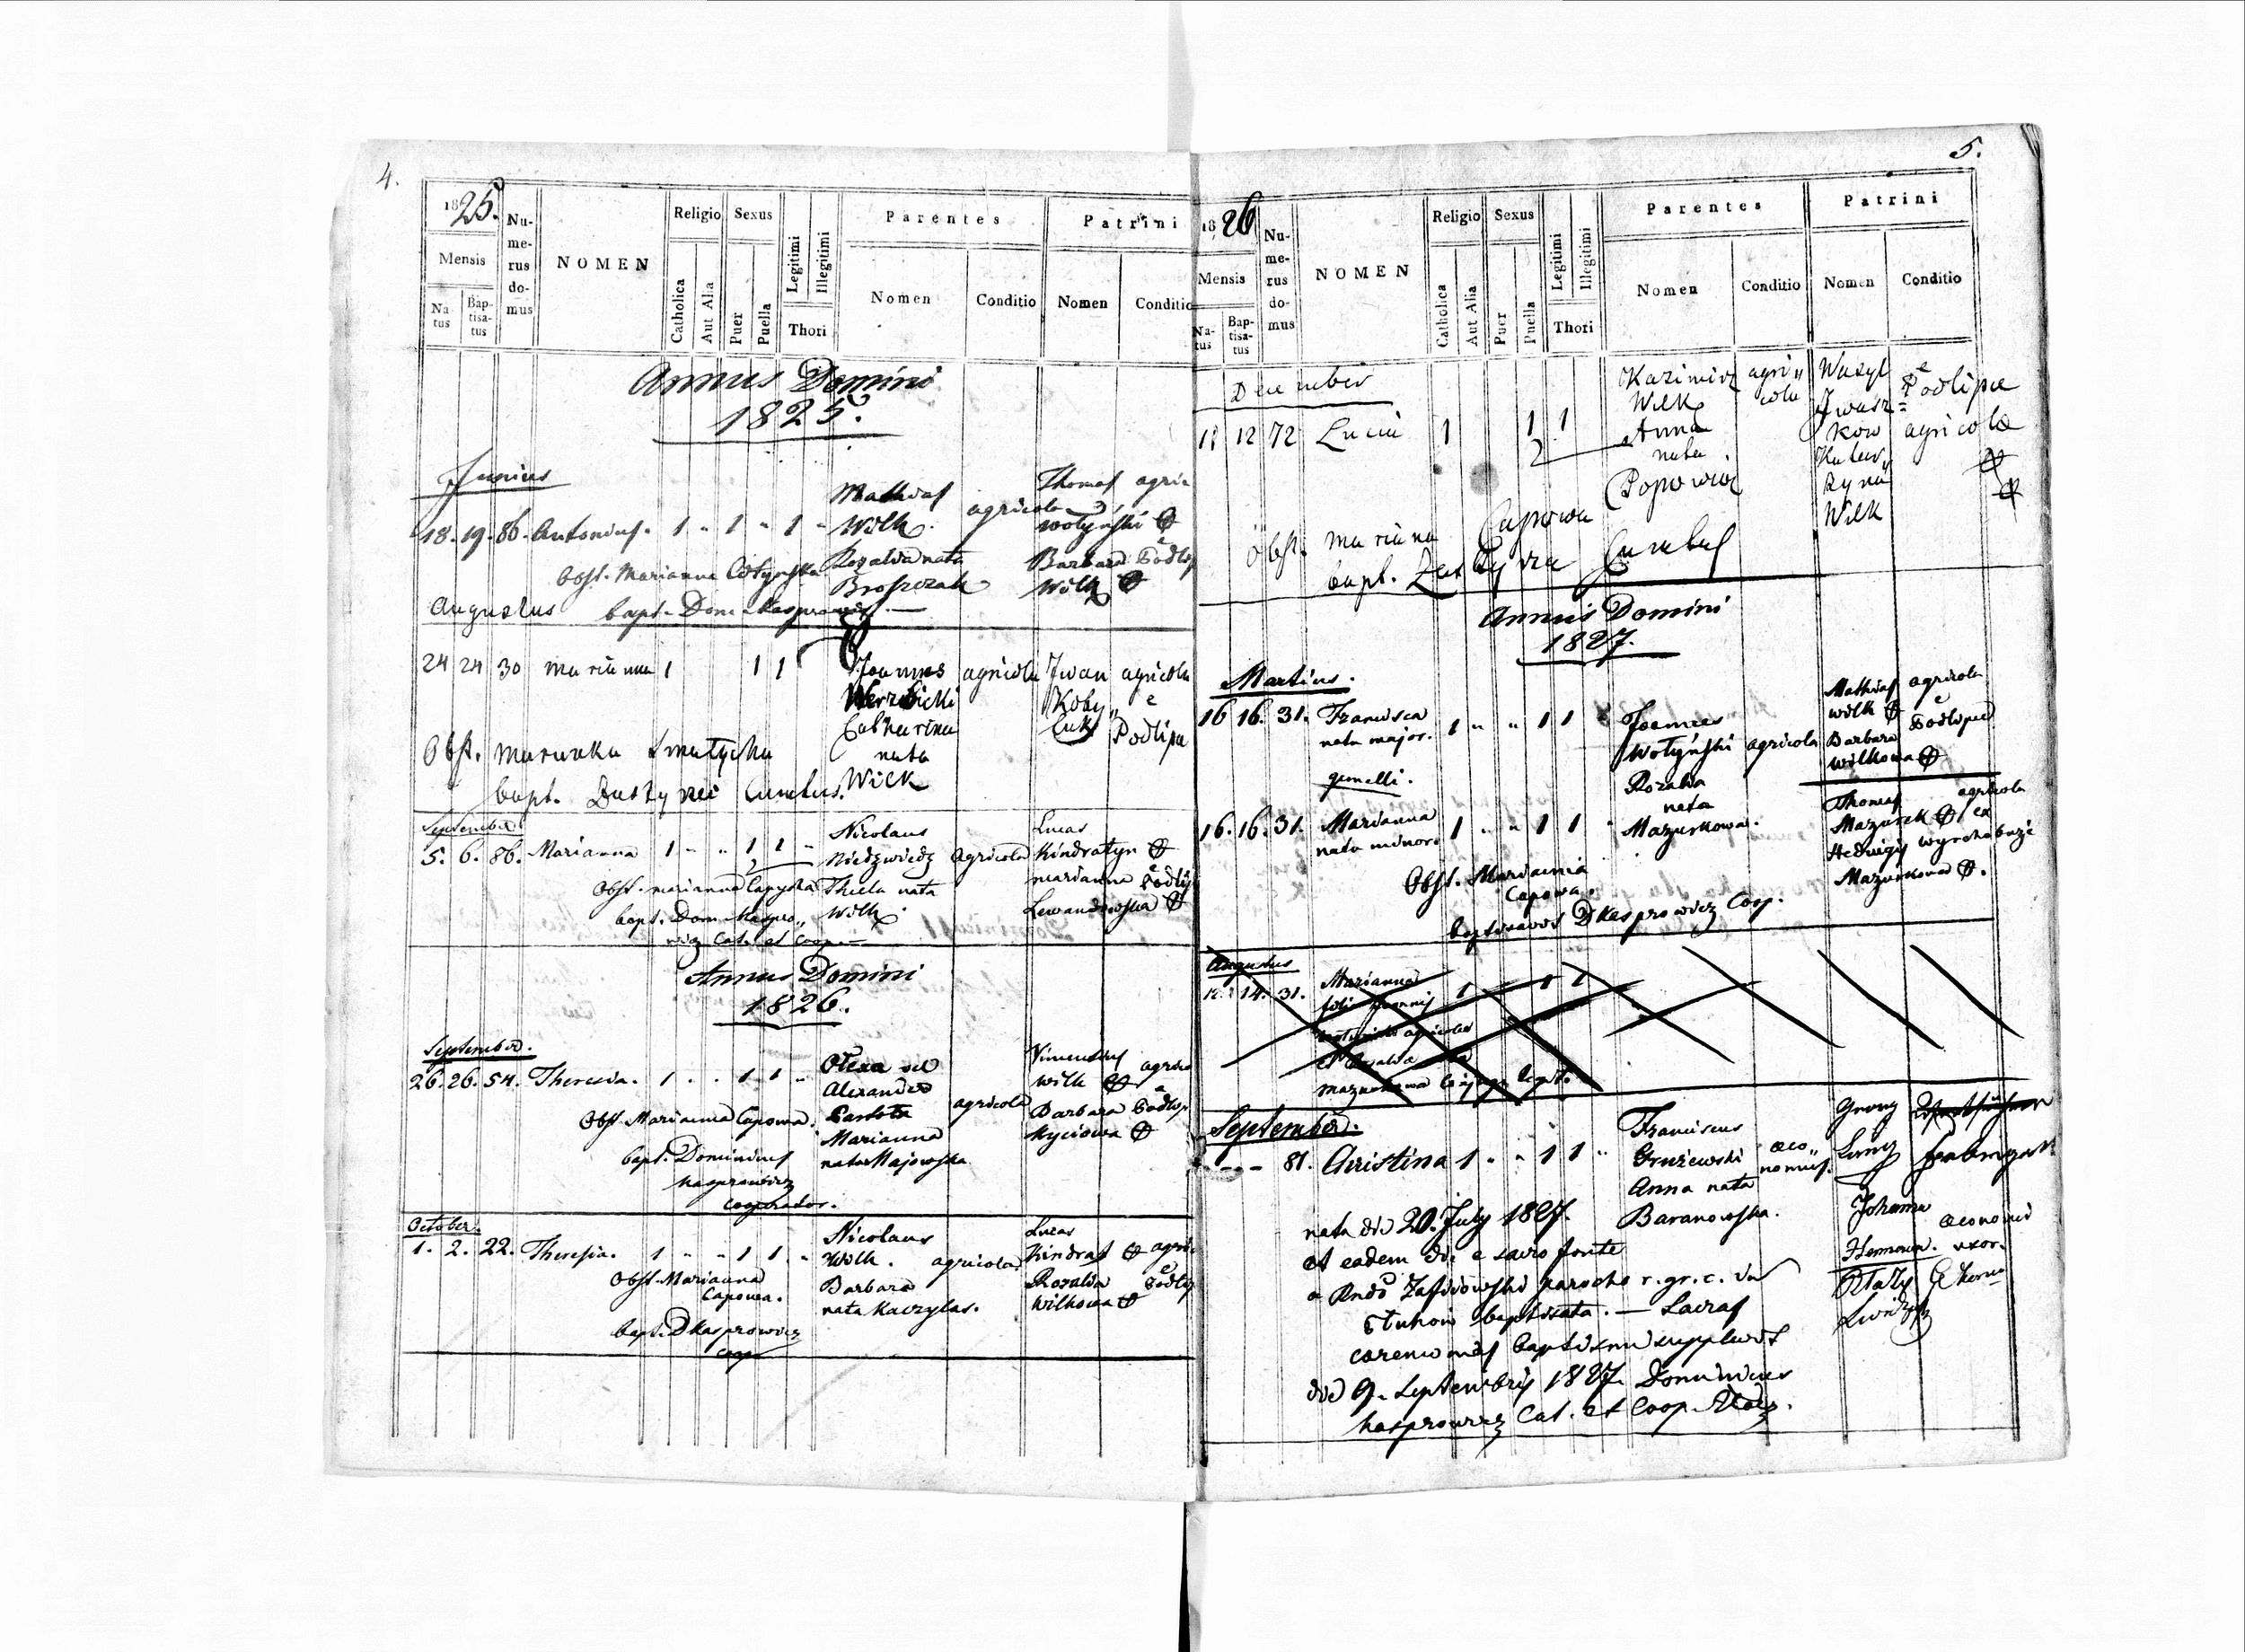 4.
1825.
Mensis
Na-
tus
Bap-
tisa-
tus
Nu-
me-
rus
do-
mus
NOMEN
Religio
Catholica
Aut Alia
Sexus
Puer
Puella
Legitimi
Illegitimi
Thori
Parentes
Nomen
Conditio
Patrini
Nomen
Conditio
Annus Domini
1825.
Junius
18. 19. 86. Antonius. 1 " 1 " 1 "
Mathias
Wilk.
Rozalia nata
agricola
Thomas agric
Wołyński
Barbara Podlip
Wilk
Obst. Marianna
bapt. Dom. Kasprowicz
Augustus
24 24 30 Marianna 1 1 1
Joannes
Catharina
nata
Wilk
agricola
Iwan
Koby„
luk
agricola
e
Podlipa
Obst.
bapt.
September
5. 6. 86. Marianna 1 " " 1 1 "
Nicolaus
Niedzwiedz
Thecla nata
Wilk.
agricola
Lucas
Kindratyn
Marianna Podlip
Lewandowska
Obst. Marianna
bapt. Dom. Kaspro„
wicz Cat. et Coop.
Annus Domini
1826.
September.
26. 26. 54. Theresia. 1 " " 1 1 "
Olexa vel
Alexander
Marianna
nata Majowska
agricola
Wilk
Barbara Podlip
Kyciowa
Obst. Marianna Capowa.
bapt. Dominicus
Kasprowicz
cooperator.
October.
1. 2. 22. Theresia. 1 " " 1 1 "
Nicolaus
Wilk.
Barbara
nata Kaczylas.
agricola
Lucas
Kindrat agric
Rozalia Podlip
Wilkowa
Obst. Marianna
Capowa.
bapt. D Kasprowicz
coop
5.
1826
Mensis
Na-
tus
Bap-
tisa-
tus
Nu-
me-
rus
do-
mus
NOMEN
Religio
Catholica
Aut Alia
Sexus
Puer
Puella
Legitimi
Illegitimi
Thori
Parentes
Nomen
Conditio
Patrini
Nomen
Conditio
December
11 12 72 Lucia 1 1 1
Kazimir
Wilk
Anna
nata
Popowicz
agri„
cola
Wasyl
Iwasz=
kow
Katar„
zyna
Wilk
e
Podlipa
agricola
Obst. Marianna Capowa
bapt.
Annus Domini
1827.
Martius.
16 16. 31. Francisca 1 " " 1 1
nata major.
gemelli.
16. 16. 31. Marianna 1 " " 1 1 "
nata minor.
Joannes
Wołyński
Rozalia
nata
Mazurkowa.
agricola
Mathias agricola
Wilk e
Barbara Podlipa
Wilkowa
Thomas agricola
Mazurek ex
Hedwigis
Mazurkowa
Obst. Marianna
Capowa.
baptisavit D Kasprowicz Coop.
Augustus
12. 14. 31. Marianna 1 1 1
agricolae
September.
- - 81. Christina 1 " " 1 1 "
Franciscus
Gruzewski
Anna nata
Baranowska.
oeco„
nomus.
Georg
Johanna
oeconomi
uxor.
nata die 20. July 1827.
et eadem die e sacro fonte
a Rndo parocho r. gr. c. in
baptisata. — Sacras
ceremonias baptismi supplevit
die 9. Septembris 1827. Dominicus
Kasprowicz Cat. et Coop.